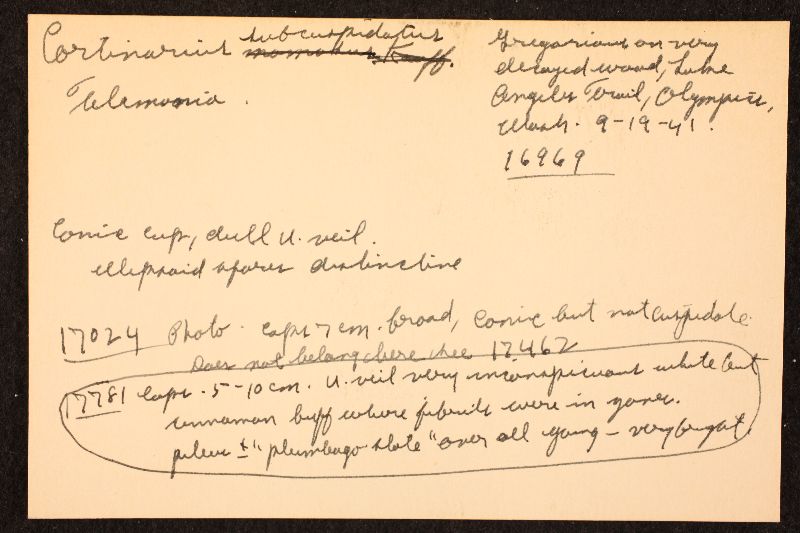 Cortinarius subcuspidatus
momokus. Kauff.
Telamonia.
Gregarious on very
decayed wood, Lake
Angeles Trail, Olympics,
Wash. 9-19-41.
16969
Conic cup, dull U. veil.
ellipsoid spores distinctive
17024 Photo. caps 7 cm. broad, conic but not cuspidate.
Does not belong here see 17,462
17781 caps. 5-10 cm. U. veil very inconspicuous white but
cinnamon buff where fibrils were in zones.
pileus ± "plumbago slate" over all young - very bright.